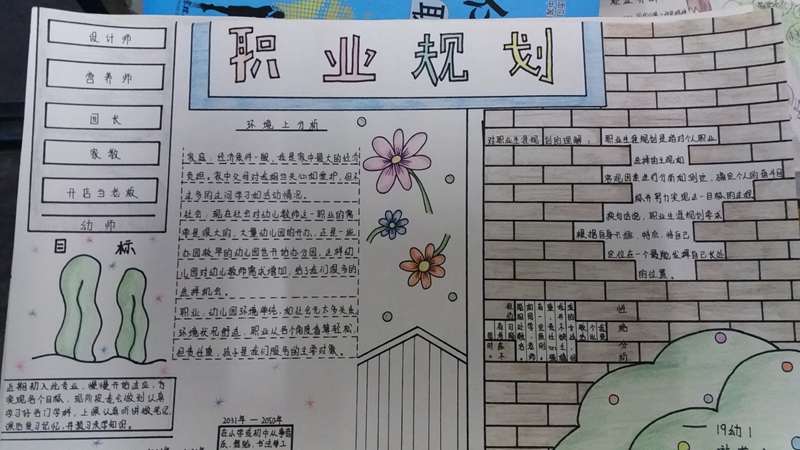 职业规划
设计师
营养师
园长
家教
开店当老板
幼师
目标
近期初入此专业，慢慢开始适应，为
实现各个目标，现阶段是会做到认真
学习好各门学科，上课认真听讲做笔记，
课后复习记忆，并预习未学知识。
环境上分析
家庭，经济条件一般，我是家中最大的经济
负担，家中父母对我相当关心和爱护，但不
过多的过问学习和活动情况。
社会，现在社会对幼儿教师这一职业的需
求是很大的，大量幼儿园的开办，还是一些
办园较早的幼儿园也开始办分园，这样幼
儿园对幼儿教师需求增加，给了我们很多的
选择机会。
职业，幼儿园环境单纯，和社会无太多关系
环境状况舒适，职业从各个角度看算轻松，
但责任重，孩子是我们服务的主要对象。
2031年—2050年
在小学或初中从事音
乐、舞蹈、书法等工
对职业生涯规划的理解：
职业生涯规划是指对个人职业
选择的主观和
客观因素进行分析和测定，确定个人的奋斗目
标并努力实现这一目标的过程
换句话说，职业生涯规划要求
根据自身兴趣、特点，将自己
定位在一个最能发挥自己长处
的位置。
19幼1